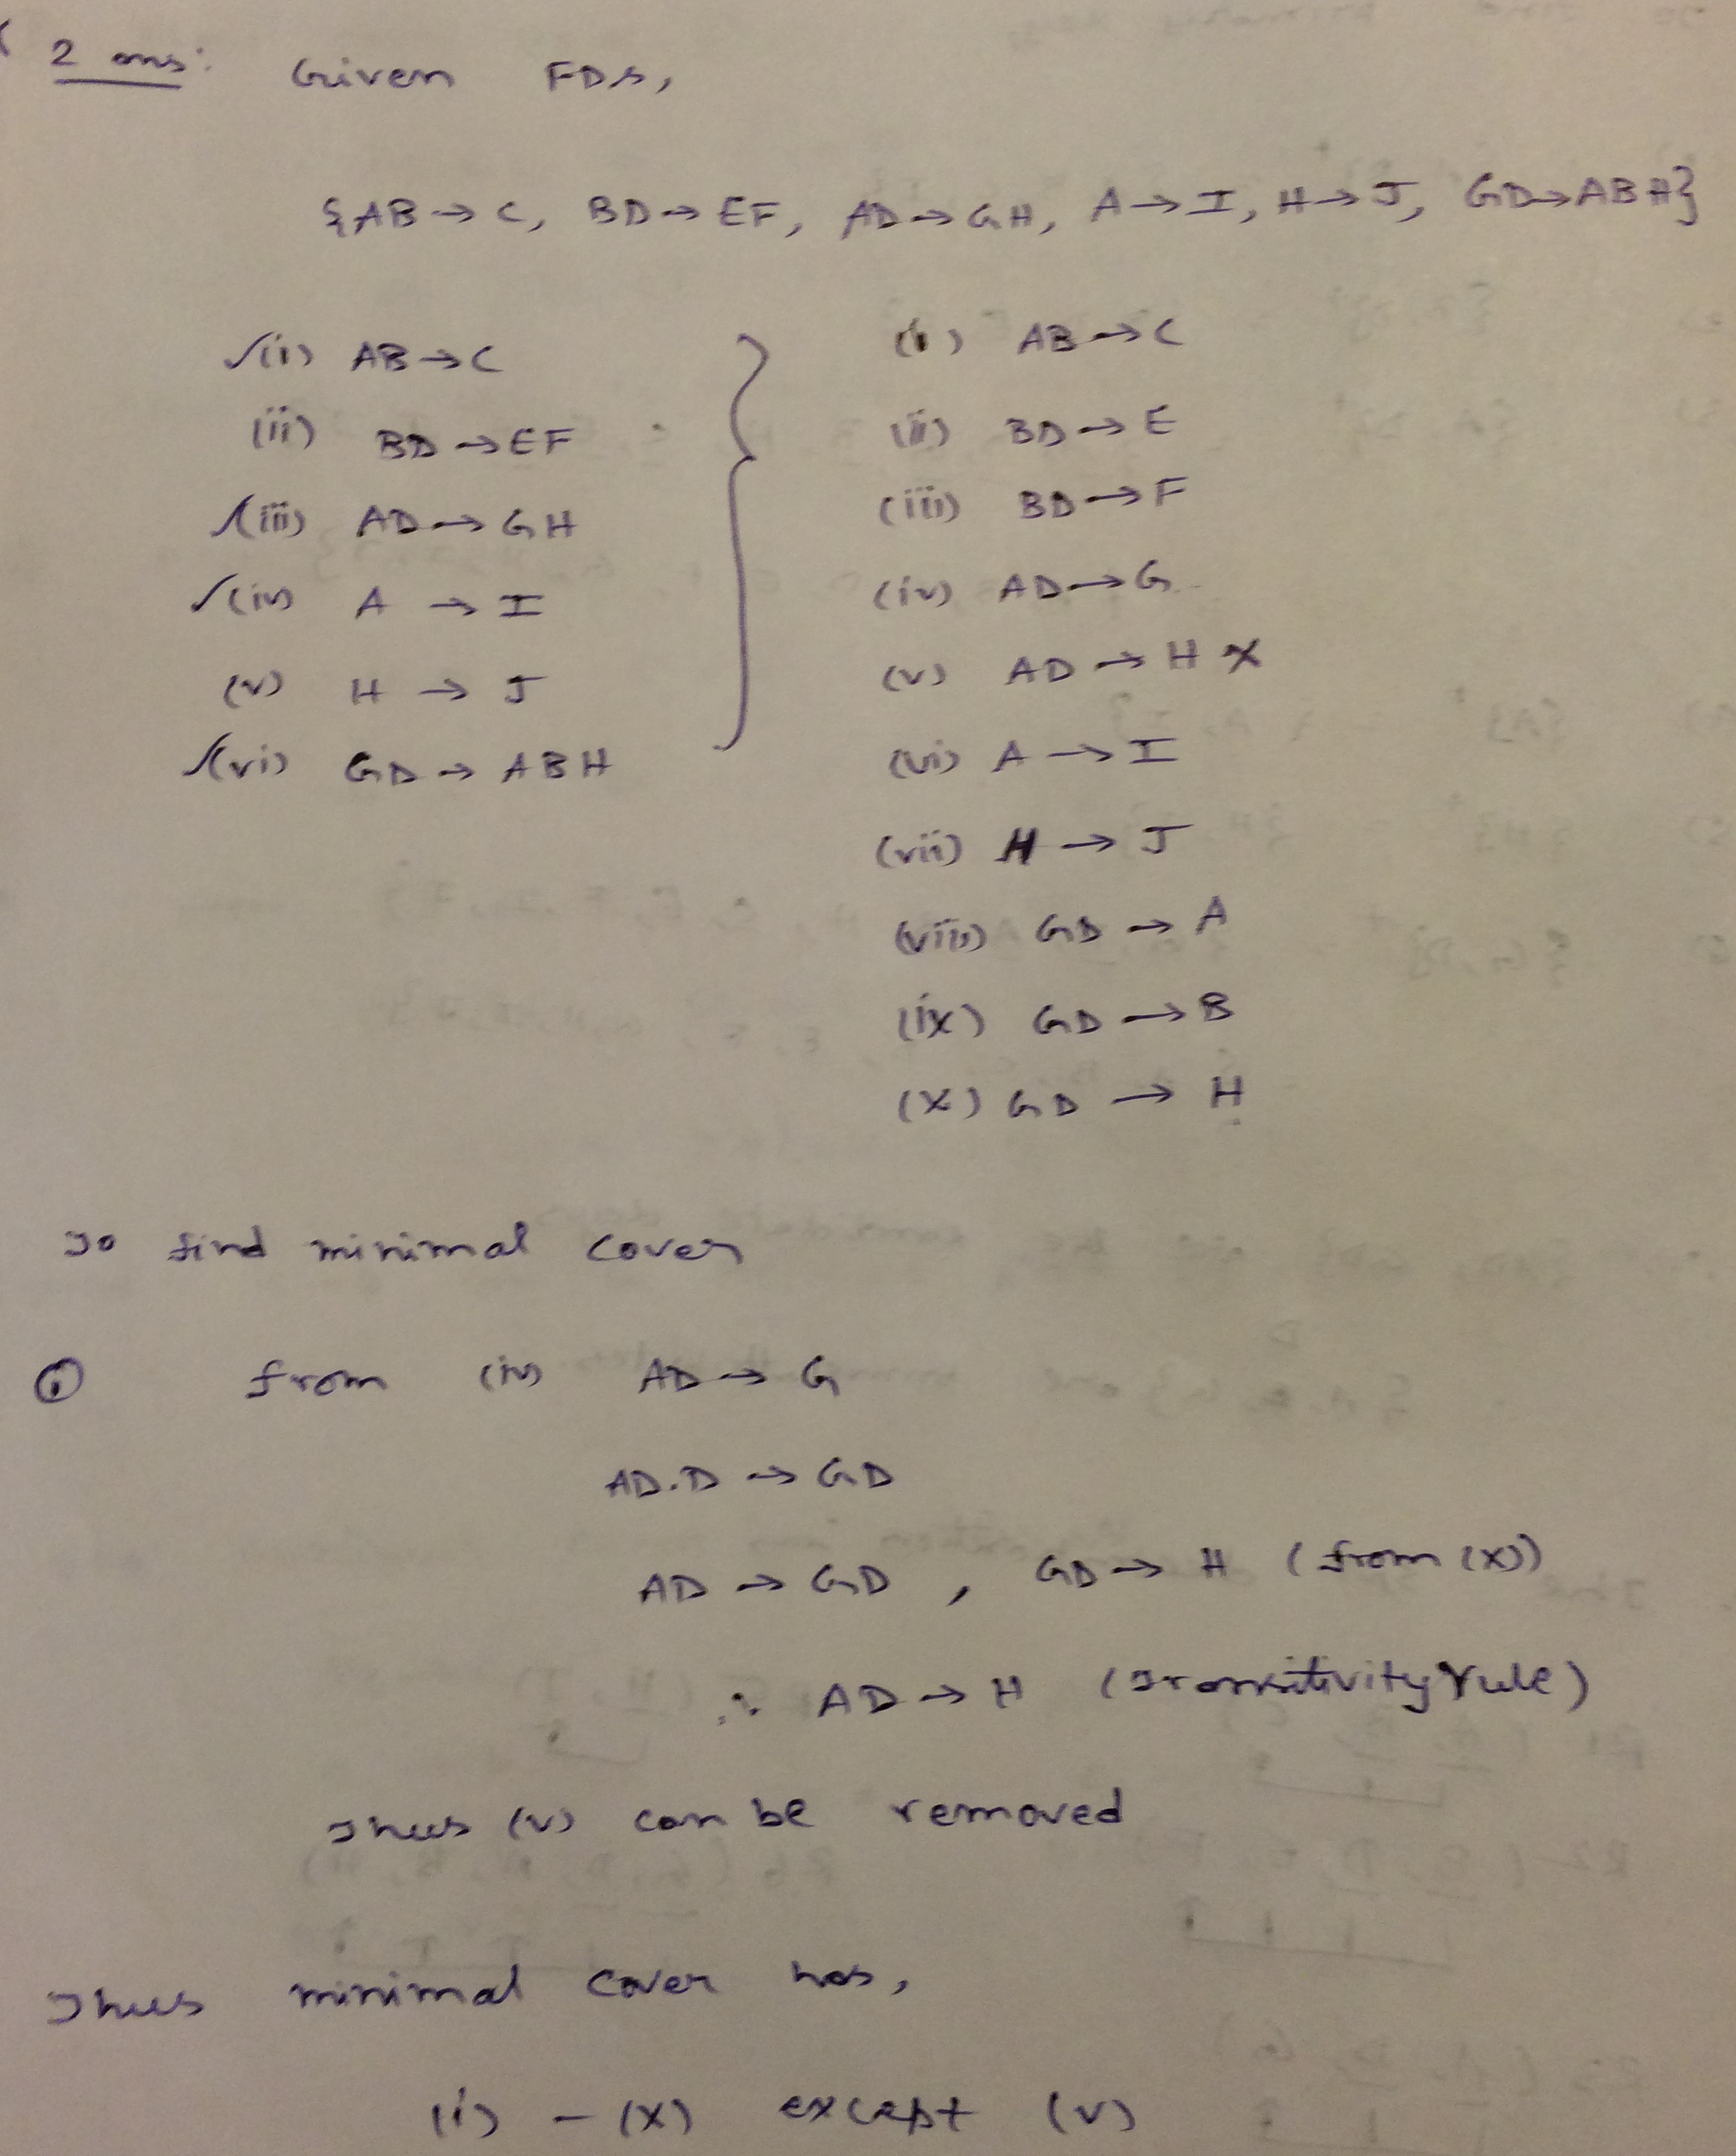 2 ans: Given FDs,
{AB → C, BD → EF, AD → GH, A → I, H → J, GD → ABH}
✓(i) AB → C
(ii) BD → EF
✓(iii) AD → GH
✓(iv) A → I
(v) H → J
✓(vi) GD → ABH
(i) AB → C
(ii) BD → E
(iii) BD → F
(iv) AD → G
(v) AD → H ✗
(vi) A → I
(vii) H → J
(viii) GD → A
(ix) GD → B
(x) GD → H
To find minimal cover
① from (iv) AD → G
AD.D → GD
AD → GD , GD → H (from (x))
∴ AD → H (Transitivity rule)
Thus (v) can be removed
Thus minimal cover has,
(i) – (x) except (v)